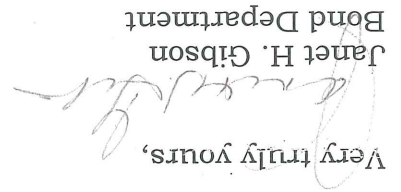 Very truly yours,
Janet H. Gibson
Bond Department